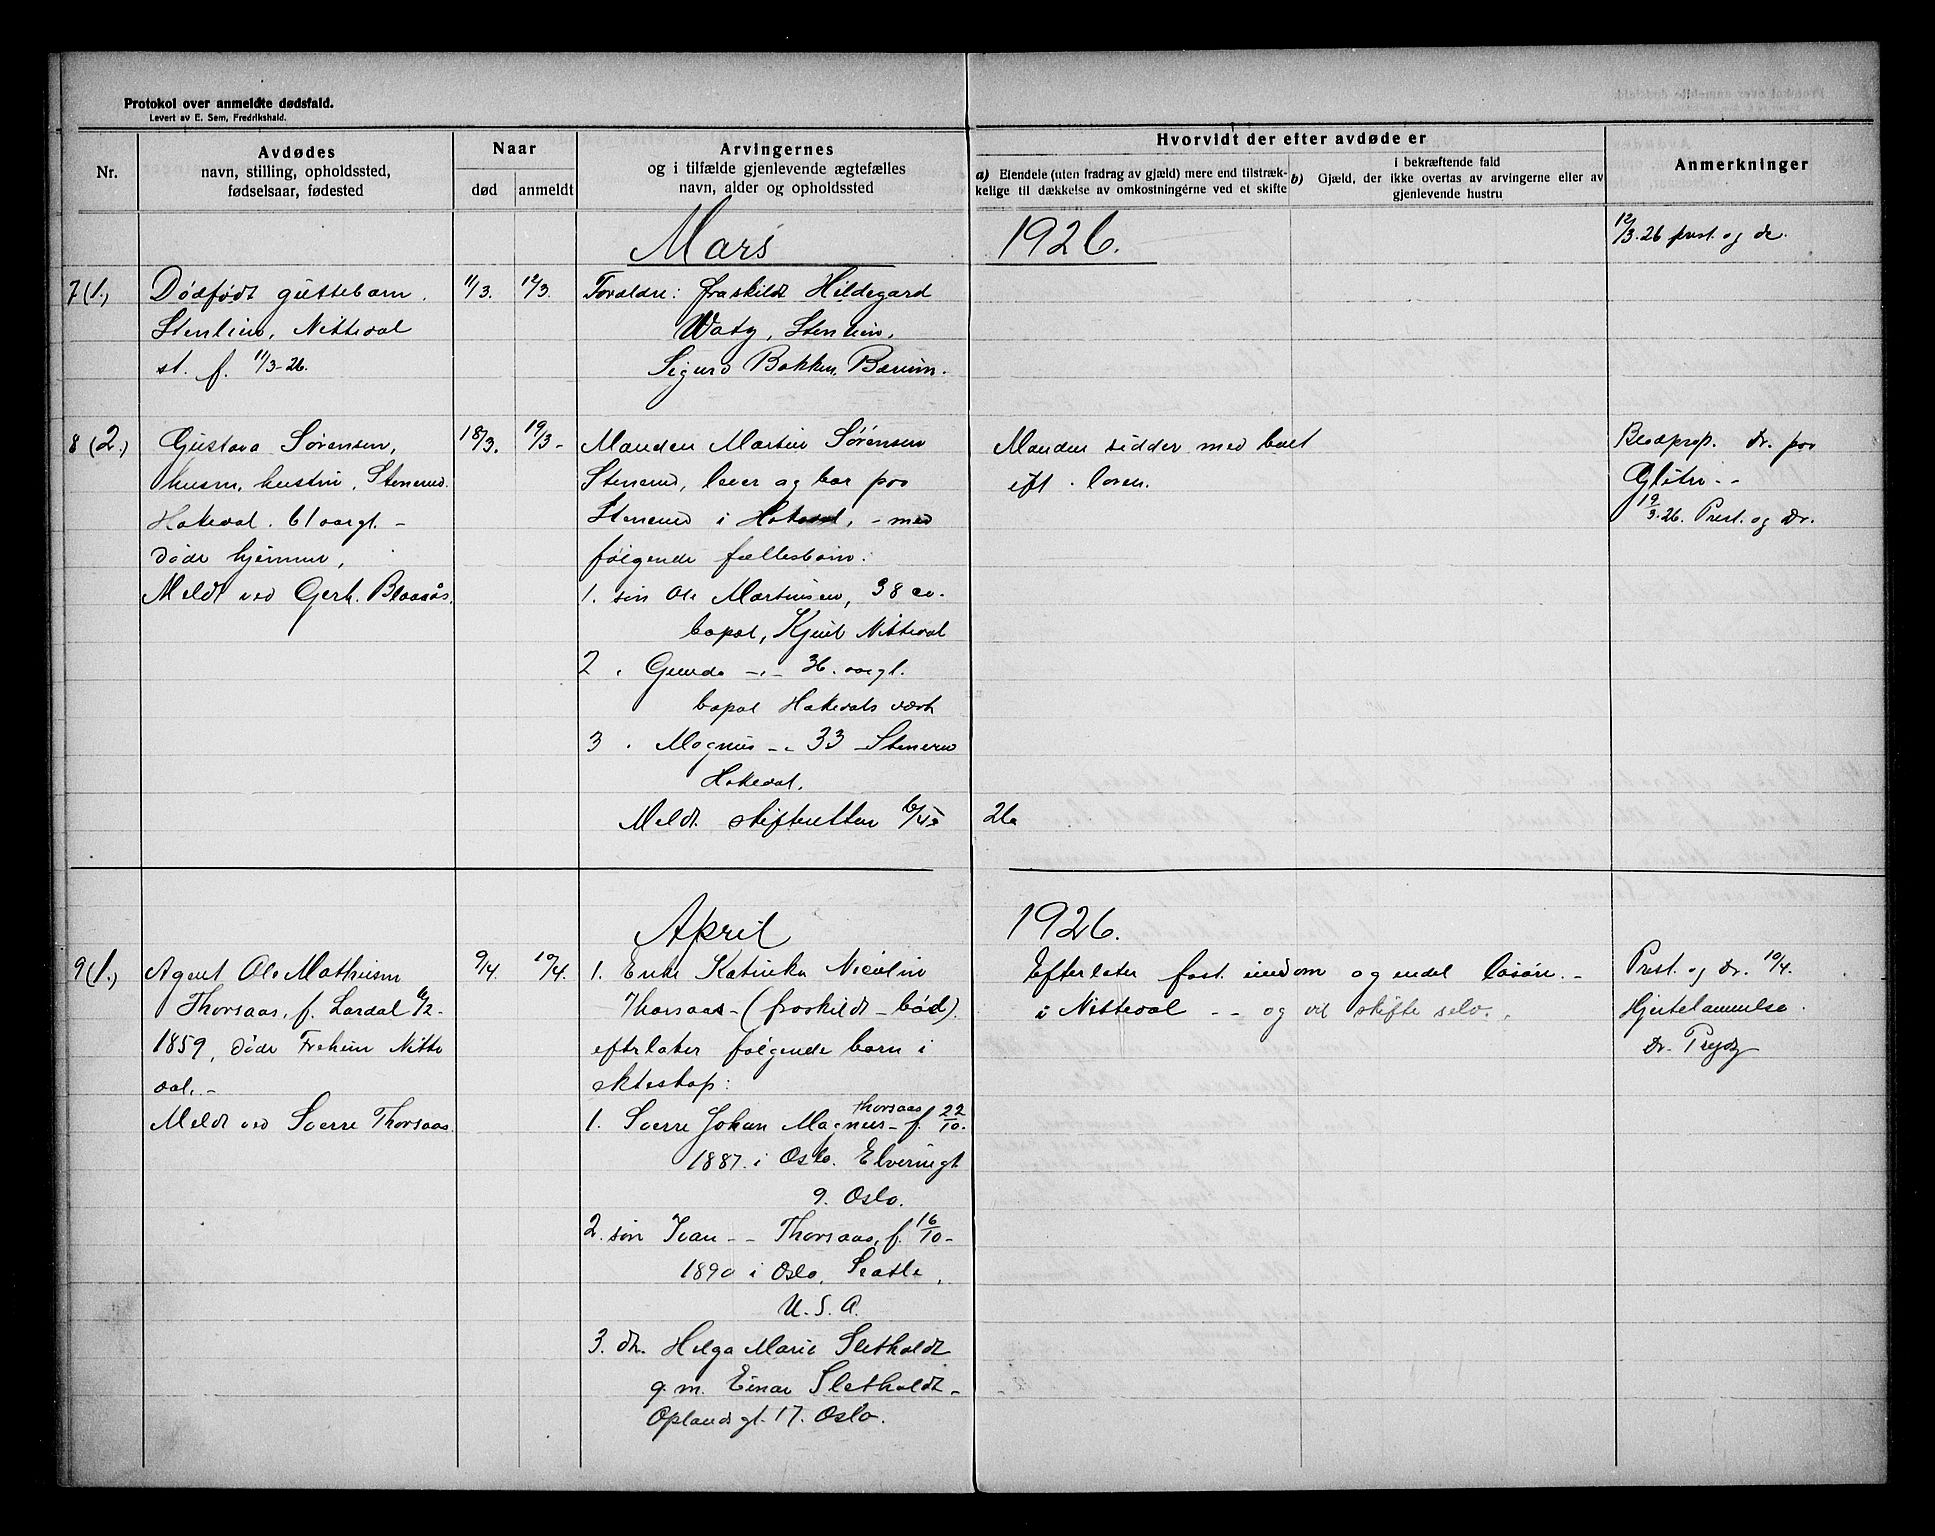 Protokol over anmeldte dødsfald.
Levert av E. Sem, Fredrikshald.
Nr.
Avdødes
navn, stilling, opholdssted,
fødselsaar, fødested
Naar
død
anmeldt
Arvingernes
og i tilfælde gjenlevende ægtefælles
navn, alder og opholdssted
Hvorvidt der efter avdøde er
a) Eiendele (uten fradrag av gjæld) mere end tilstræk-
kelige til dækkelse av omkostningerne ved et skifte
b) i bekræftende fald
Gjæld, der ikke overtas av arvingerne eller av
gjenlevende hustru
Anmerkninger
Mars
1926.
12/3. 26 prest. og dr.
7 (1.)
Dødfødt guttebarn.
Stenlien, Nittedal
st. f. 11/3-26.
11/3.
12/3.
Foraldre: fraskildt Hildegard
Waty, Stenlien,
Sigurd Bakken, Bærum.
8 (2.)
Gustava Sørensen,
husm. hustru, Stenerud.
Hakedal. 61 aargl. -
døde hjemme,
Meldt ved Gerh. Blaasås.
18/3.
19/3-
Manden Martin Sørensen
Stenerud, lever og bor paa
Stenerud i Hakedal, - med
følgende fællesbarn:
1. søn Ole Martinsen, 38 av.
bopæl, Kjul Nittedal
2 . Gunda -.- 36. aargl.
bopæl Hakedals værk
3 . Magnus -.- 33 Stenerud
Hakedal.
Meldt skifteretten 6/4 26
Manden sidder med boet
eft. loven.
Blodprop. Dr. paa
Glitre --
19/3. 26. Prest. og Dr.
April
1926.
9 (1.)
Agent Ole Mathisen
Thorsaas, f. Lardal 6/2-
1859, døde Trehein Nitte
dal. -
Meldt ved Sverre Thorsaas.
9/4.
10/4.
1. Enke Katinka Nicoline
Thorsaas - (fraskildt - bød).
efterlater følgende barn i
ekteskap:
1. Sverre Johan Magnus Thorsaas - f. 22/10.
1887. i Oslo. Elveringt
9. Oslo.
2. søn Ivan -- Thorsaas, f. 16/10-
1890 i Oslo, Seatle,
U. S. A.
3. dt. Helga Marie Sletholdt
g. m. Einar Sletholdt -
Oplandsgt. 17. Oslo.
Efterlater fast. eiendom og endel løsøre. -
i Nittedal -- og vil skifte selv.
Prest. og Dr. 10/4.
Hjertelammelse.
Dr. Prydz